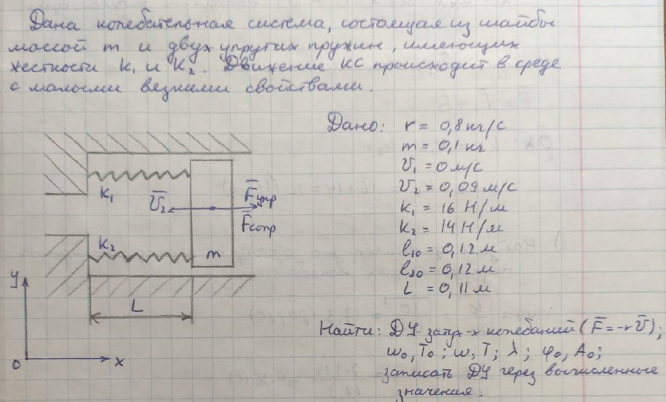 Дана колебательная система, состоящая из шайбы
массой m и двух упругих пружин, имеющих
жесткости k₁ и k₂. Движение КС происходит в среде
с малыми вязкими свойствами.
Дано: r = 0,8 кг/с
m = 0,1 кг
υ₁ = 0 м/с
υ₂ = 0,09 м/с
k₁ = 16 Н/м
k₂ = 14 Н/м
l₁₀ = 0,12 м
l₂₀ = 0,12 м
L = 0,11 м
k₁
F̅упр
υ̅₂
F̅сопр
k₂
m
y
L
0
x
Найти: ДУ затух-х колебаний (F̅ = -rυ̅);
ω₀, T₀; ω, T; λ; φ₀, A₀;
записать ДУ через вычисленные
значения.